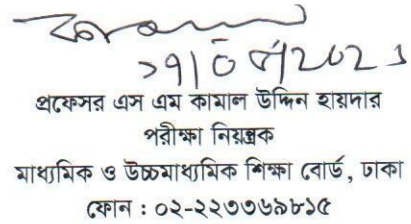 প্রফেসর এস এম কামাল উদ্দিন হায়দার
পরীক্ষা নিয়ন্ত্রক
মাধ্যমিক ও উচ্চমাধ্যমিক শিক্ষা বোর্ড, ঢাকা
ফোন : ০২-২২৩৩৬৯৮১৫